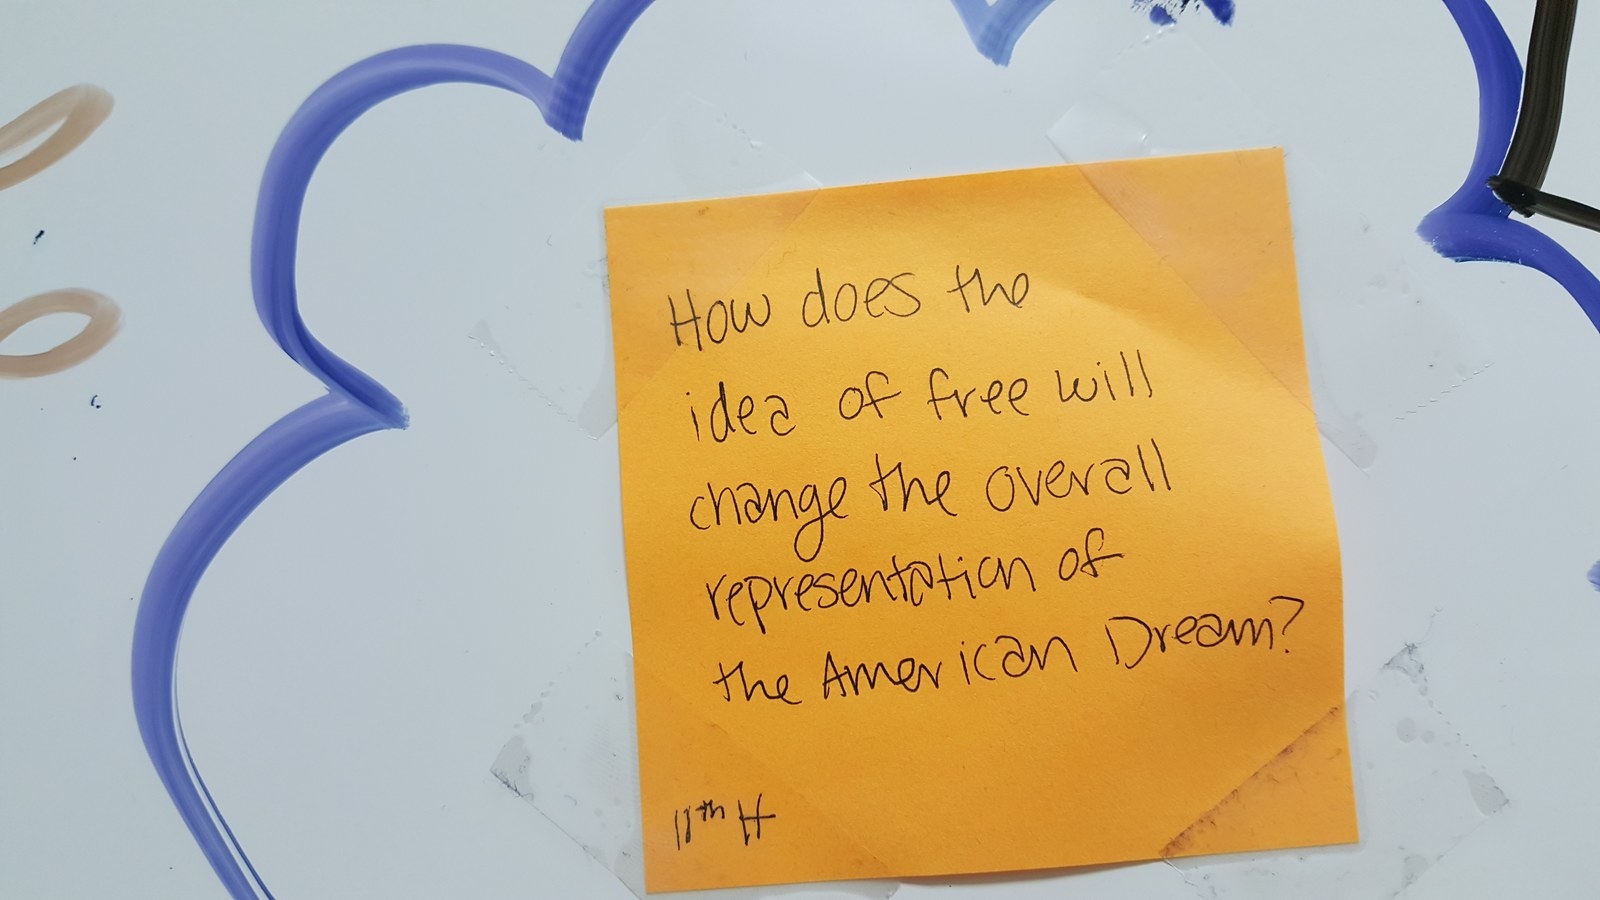 How does the
idea of free will
change the overall
representation of
the American Dream?
11th H